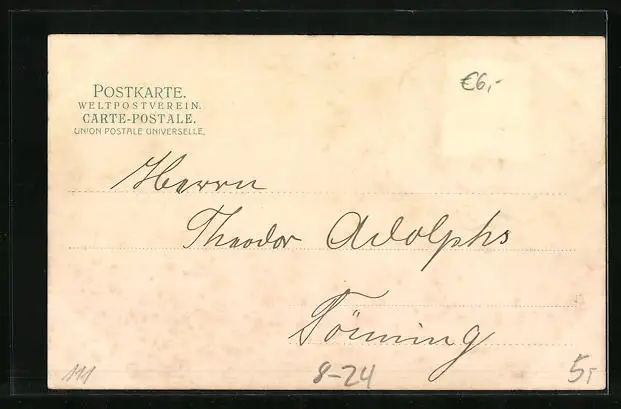 POSTKARTE.
WELTPOSTVEREIN.
CARTE-POSTALE.
UNION POSTALE UNIVERSELLE.
€6,-
Herrn
Theodor Adolphs
Tönning
111
8-24
5,-